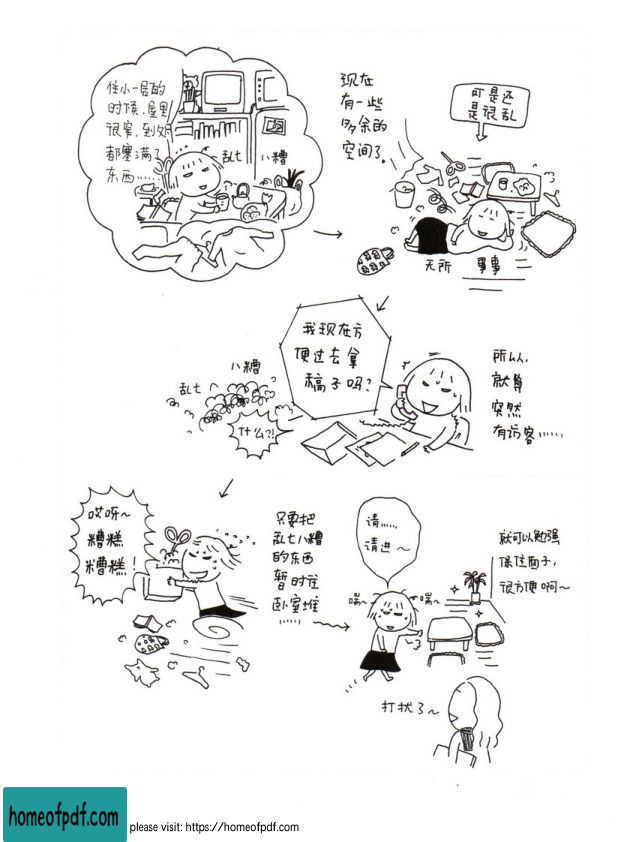 住小一居的
时候，屋里
很窄，到处
都塞满了
东西……
乱七八糟
现在
有一些
多余的
空间了。
可是还
是很乱
无所事事
我现在方
便过去拿
稿子吗？
所以，
就算
突然
有访客……
乱七八糟
什么?!
哎呀～
糟糕
糟糕！
只要把
乱七八糟
的东西
暂时往
卧室堆
……
请……
请进～
喘～ 喘～
就可以勉强
保住面子，
很方便啊～
打扰了～
homeofpdf.com
please visit: https://homeofpdf.com